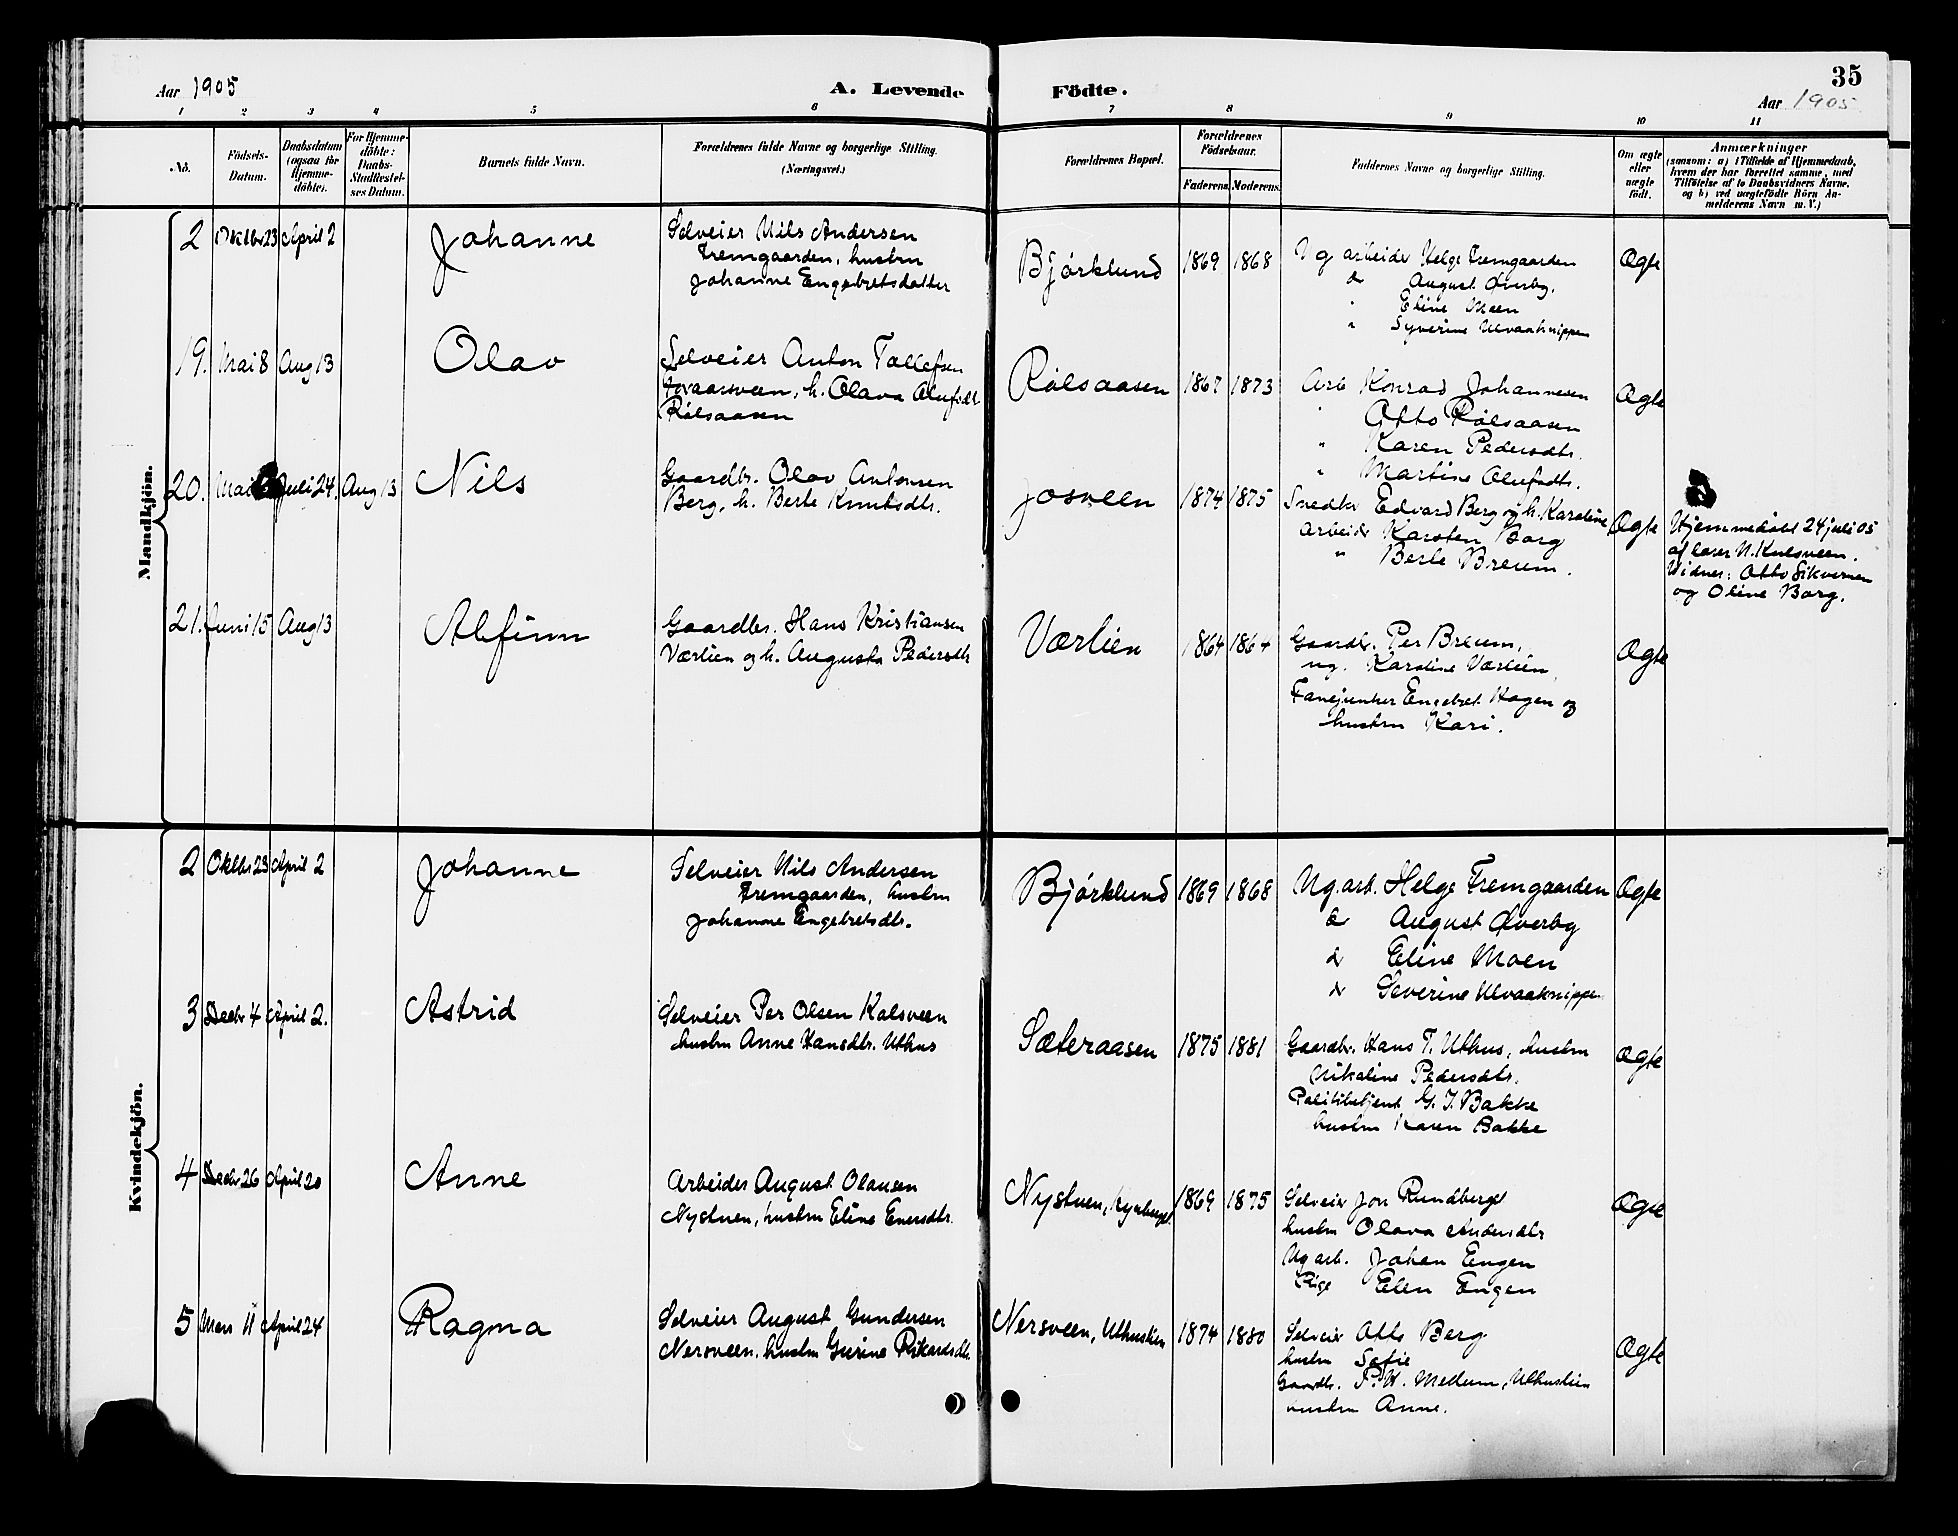 35
Aar 1905 A. Levende Födte. Aar 1905
1 2 3 4 5 6 7 8 9 10 11
No.
Födsels-
Datum.
Daabsdatum
(ogsaa for
Hjemme-
döbte).
For Hjemme-
döbte:
Daabs-
Stadfæstel-
ses Datum.
Barnets fulde Navn.
Forældrenes fulde Navne og borgerlige Stilling.
(Næringsvei.)
Forældrenes Bopæl.
Forældrenes
Födselsaar.
Faderens. Moderens.
Faddernes Navne og borgerlige Stilling.
Om ægte
eller
uægte
födt.
Anmærkninger
(saasom: a) i Tilfælde af Hjemmedaab,
hvem der har forrettet samme, med
Tilföielse af to Daabsvidners Navne,
og b) ved uægtefödte Börn An-
melderens Navn m. V.)
Mandkjön.
2 Oktbr 23 April 2 Johanne
Selveier Nils Andersen
Fremgaarden, hustru
Johanne Engebretsdatter
Bjórklund 1869 1868
Ug arbeider Helge Fremgaarden
do August Överby.
" Eline Moen
" Syverine Ulvaaknippen
Ægte
19. Mai 8 Aug 13 Olav
Selveier Anton Tollefsen
h. Olava Olufsdt.
Rólsaasen
Rólsaasen 1867 1873
Arb Konrad Johannesen
" Otto Rólsaasen
" Karen Pedersdtr.
" Martine Olufsdtr.
Ægte
20. Mai Juli 24. Aug 13 Nils
Gaardbr. Olav Antonsen
Berg, h. Berte Knutsdtr.
Josveen 1874 1875
Snedker Edvard Berg og h. Karoline
Arbeider Karsten Borg
" Berte Breum.
Ægte
Hjemmedöbt 24 juli 05
af lærer N. Kulsveen.
Vidner: Otto Sikverien
og Oline Borg.
21. Juni 15 Aug 13 Alfinn
Gaardbr. Hans Kristiansen
Værlien og h. Augusta Pedersdtr
Værlien 1864 1864
Gaardbr. Per Breum,
ug. Karoline Værlien,
Fanejunker Engebret Hagen og
hustru Kari.
Ægte
Kvindekjön.
2 Oktbr 23 April 2 Johanne
Selveier Nils Andersen
Fremgaarden, hustru
Johanne Engebretsdtr.
Bjórklund 1869 1868
Ug. arb. Helge Fremgaarden
do August Överby
do Eline Moen
do Severine Ulvaaknippen
Ægte
3 Decbr 4 April 2. Astrid
Selveier Per Olsen Kolsveen
hustru Anne Hansdtr. Uthus
Sæteraasen 1875 1881
Gaardbr. Hans T. Uthus, hustru
Nikoline Pedersdtr.
Politibetjent G. J. Bakke
hustru Karen Bakke
Ægte
4 Decbr 26 April 20 Anne
Arbeider August Olausen
Nystuen, hustru Eline Enersdtr.
Nystuen, Kynberget 1869 1875
Selveier Jon Rundberget
hustru Olava Andersdtr
Ug arb. Johan Engen
Pige Elen Engen
Ægte
5 Mars 11 April 24 Ragma
Selveier August Gundersen
Nersveen, hustru Gurine Rikardsdtr.
Nersveen, Uthuslien 1874 1880
Selveier Otto Berg
hustru Sofie
Gaardbr. P. H. Mellum, Uthuslien
hustru Anne.
Ægte